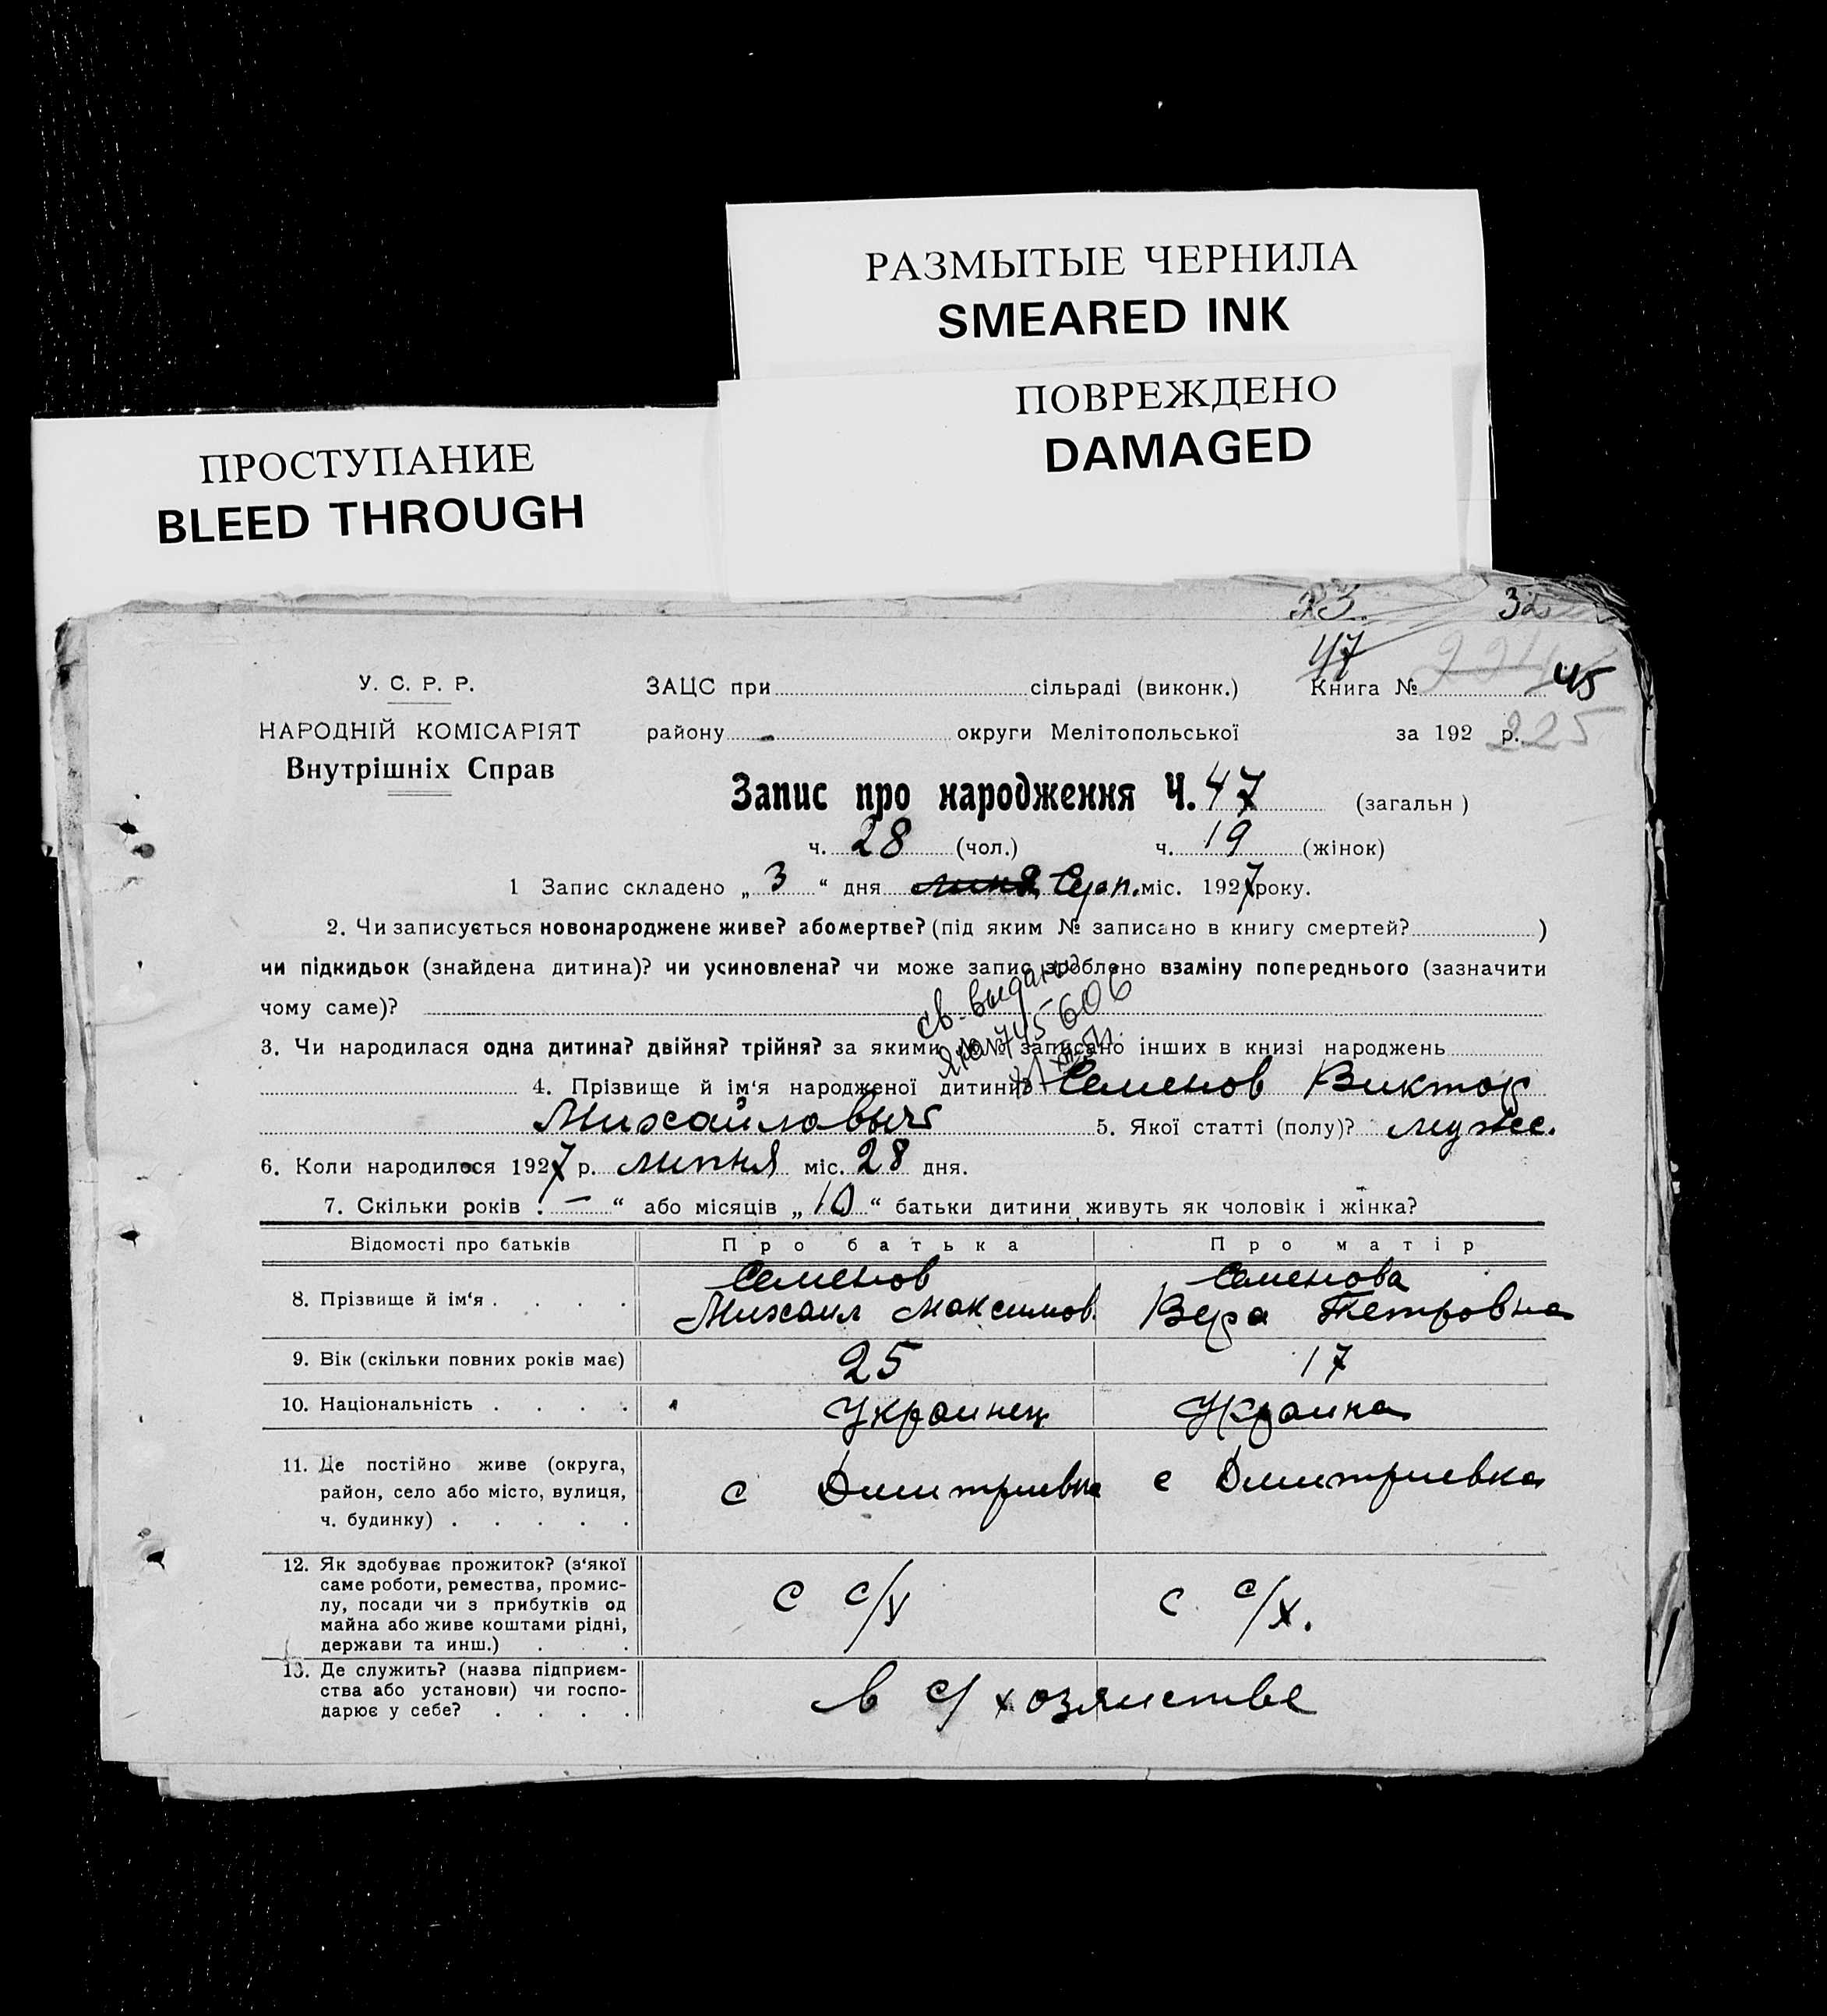 РАЗМЫТЫЕ ЧЕРНИЛА
SMEARED INK
ПОВРЕЖДЕНО
DAMAGED
ПРОСТУПАНИЕ
BLEED THROUGH
23 32
47
У. С. Р. Р. ЗАЦС при сільраді (виконк.) Книга № 45
НАРОДНІЙ КОМІСАРІЯТ району - округи Мелітопольської за 192 р. 225
Внутрішніх Справ
Запис про народження Ч. 47 (загальн )
ч. 28 (чол.) ч. 19 (жінок)
1 Запис складено „ 3 “ дня липня Серп. міс. 1927 року.
2. Чи записується новонароджене живе? або мертве? (під яким № записано в книгу смертей? )
чи підкидьок (знайдена дитина)? чи усиновлена? чи може запис зроблено взаміну попереднього (зазначити
чому саме)?
св. выдано
745606
3. Чи народилася одна дитина? двійня? трійня? за якими №№ записано інших в книзі народжень
4. Прізвище й ім'я народженої дитини? Семенов Виктор
Михайлович 5. Якої статті (полу)? мужс.
6. Коли народилося 1927 р. липня міс. 28 дня.
7. Скільки років „ — “ або місяців „ 10 “ батьки дитини живуть як чоловік і жінка?
Відомості про батьків Про батька Про матір
8. Прізвище й ім‘я . . . . Семенов Михаил Максимов. Семенова Вера Петровна
9. Вік (скільки повних років має) 25 17
10. Національність . . . . Украинец Украинка
11. Де постійно живе (округа,
район, село або місто, вулиця,
ч. будинку) . . . . . с Дмитриевка с Дмитриевка
12. Як здобуває прожиток? (з‘якої
саме роботи, ремества, промис-
лу, посади чи з прибутків од
майна або живе коштами рідні,
держави та инш.) . . . с с/х с с/х.
13. Де служить? (назва підприєм-
ства або установи) чи госпо-
дарює у себе? . . . . в с/хозяистве